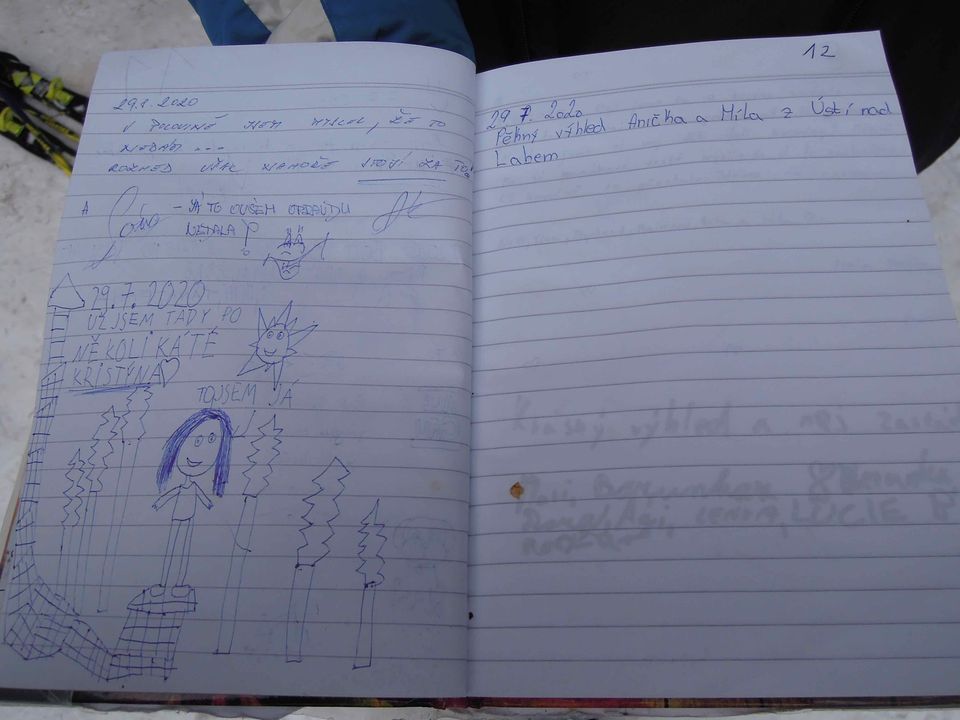 29.7. 2020
V POLOVINĚ JSEM MYSLEL, ŽE TO
NEDÁM ...
ROZHLED VŠAK NAHOŘE STOJÍ ZA TO!
A
- JÁ TO OVŠEM OPRAVDU
NEDALA!
29.7. 2020
UŽ JSEM TADY PO
NĚKOLIKÁTÉ
KRISTÝNA
TO JSEM JÁ
12
29 7. 2020
Pěkný výhled Anička a Míla z Ústí nad
Labem
Krásný výhled a
LUCIE